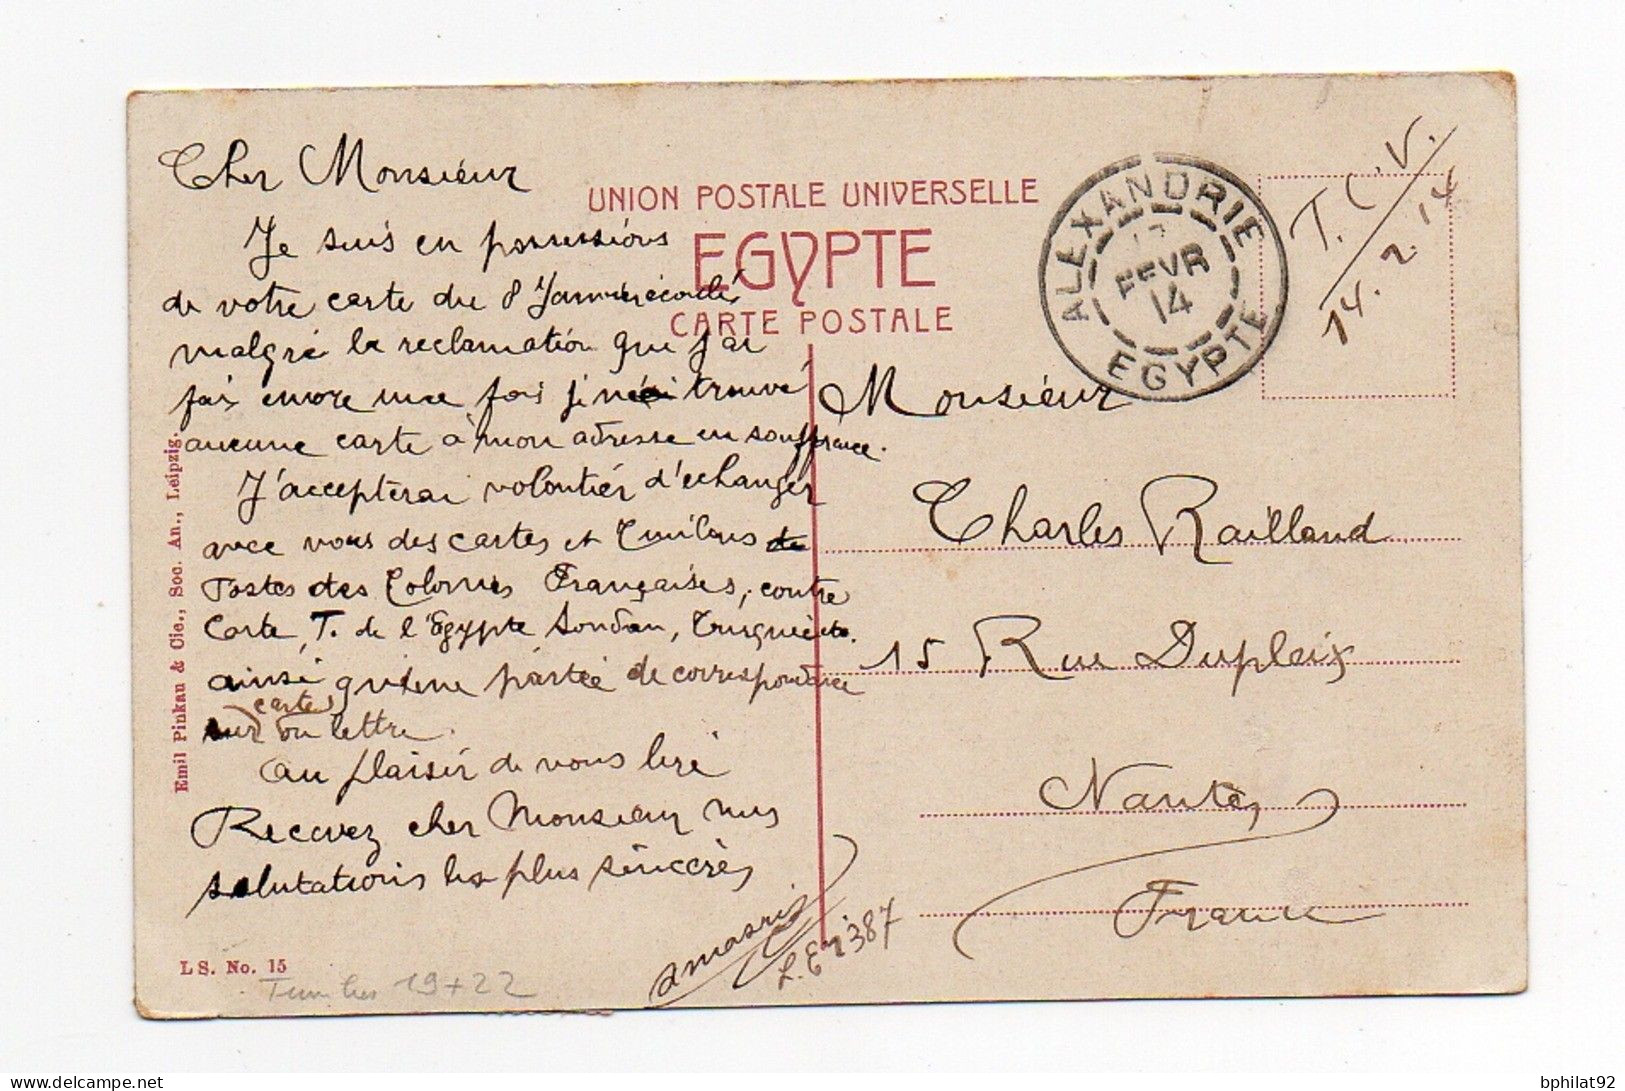 Cher Monsieur
Je suis en possessions
de votre carte du 8 Janvier
malgré la reclamation que j'ai
fais encore une fois je trouvé
aucune carte à mon adresse en souffrence.
J'accepterai volontier d'echanger
avec vous des cartes et Timbres de
Postes des Colonies Françaises, contre
Carte, T. de l'Egypte Soudan, Turquie etc.
ainsi de correspondance
sur carte ou lettre.
Au plaisir de vous lire
Recevez cher Monsieur mes
salutations les plus sincerès
UNION POSTALE UNIVERSELLE
EGYPTE
CARTE POSTALE
ALEXANDRIE
FEVR
14
EGYPTE
T.C.V.
14.2.14
Monsieur
Charles Railland
15 Rue Dupleix
Nantes
France
387
Emil Pinkau & Cie., Soc. An., Leipzig.
LS. No. 15
Timbres 19+22
delcampe.net
bphilat92